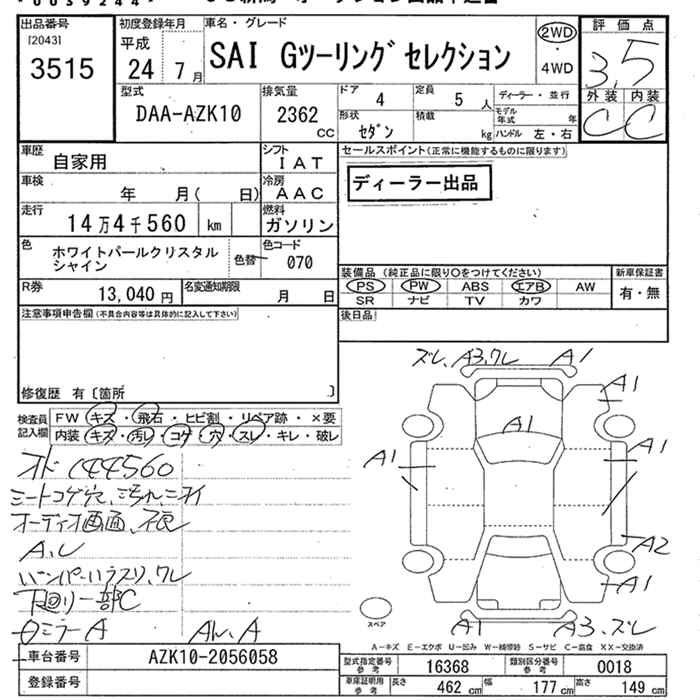 出品番号
[2043]
3515
初度登録年月
平成
24 7月
車名・グレード
SAI Gツーリングセレクション
2WD
・
4WD
評価点
3.5
外装 内装
C C
型式
DAA-AZK10
排気量
2362
CC
ドア 4
定員 5人
ディーラー・並行
形状 セダン
積載 kg
モデル年式 年
ハンドル 左・右
車歴 自家用
シフト IAT
車検 年 月( 日)
冷房 AAC
走行 14万4千560 km
燃料 ガソリン
色 ホワイトパールクリスタルシャイン
色替
色コード 070
R券 13,040円
名変通知期限 月 日
セールスポイント(正常に機能するものに限ります)
ディーラー出品
装備品(純正品に限り○をつけてください)
PS PW ABS エアB AW
SR ナビ TV カワ
新車保証書
有・無
後日品
注意事項申告欄(不具合内容等は具体的に記入して下さい)
修復歴 有〔箇所 〕
検査員記入欄
FW キズ・飛石・ヒビ割・リペア跡・×要
内装 キズ・汚レ・コゲ・穴・スレ・キレ・破レ
オド 144560
シートコゲ穴、汚れ、ニオイ
オーディオ画面、不良
A、レ
下回り一部C
ミラーA
ズレ、A3,ワレ A1
A1
A1
A1
A1
A2
A1
A1
A3、ズレ
スペア
A−キズ E−エクボ U−凹み W−補修跡 S−サビ C−腐食 XX−交換済
車台番号 AZK10-2056058
登録番号
型式指定番号 参考 16368
類別区分番号 参考 0018
車庫証明用 参考 長さ 462 cm 幅 177 cm 高さ 149 cm